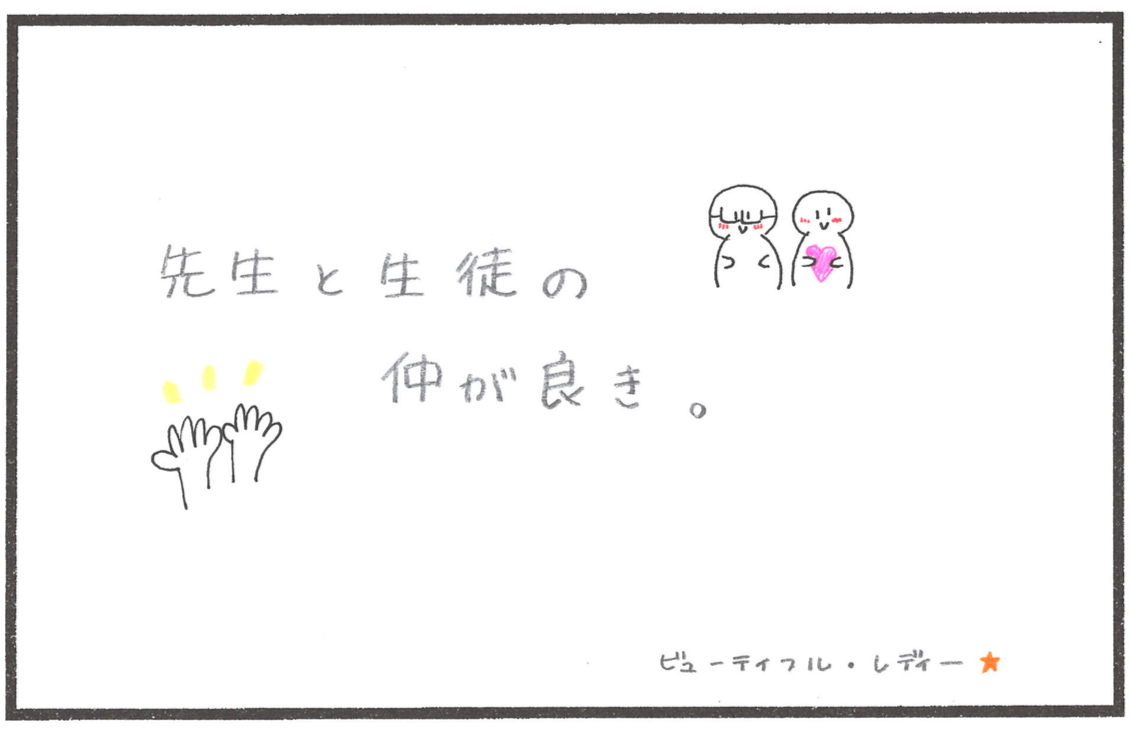 先生と生徒の
仲が良き。
ビューティフル・レディー★